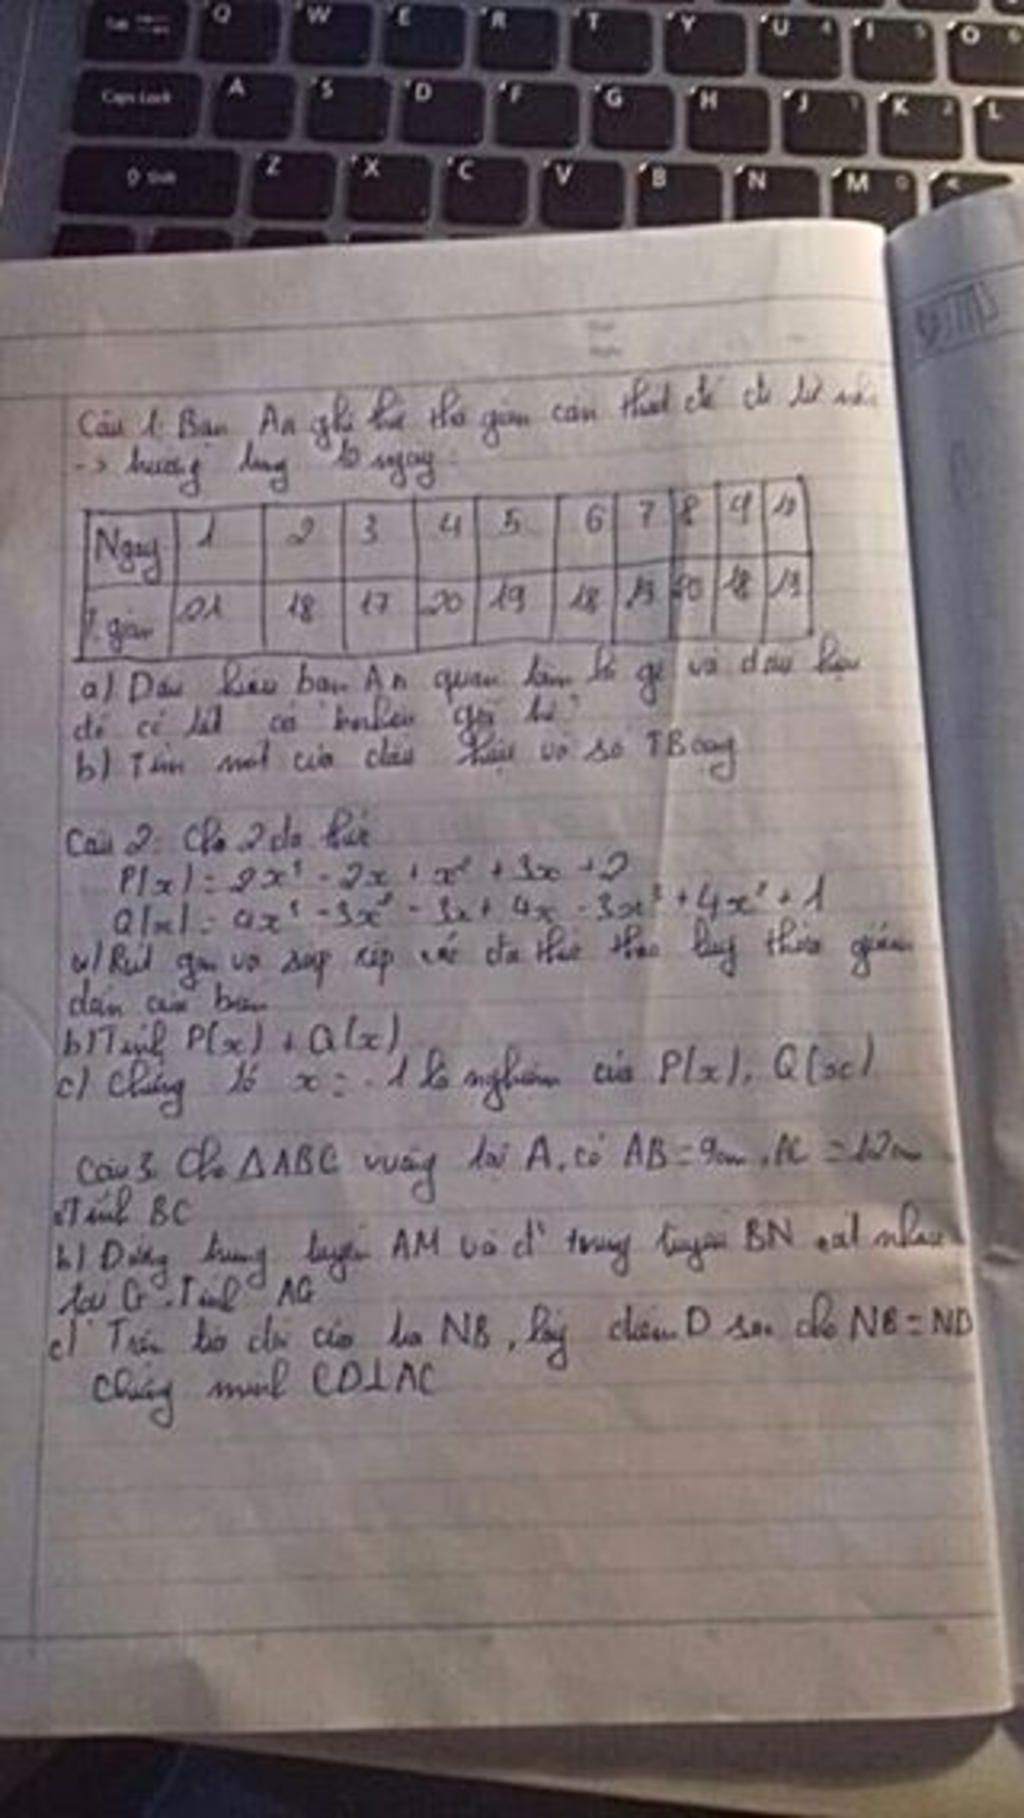 Q W E R T Y U I O
Caps Lock A S D F G H J K L
Z X C V B N M
Câu 1. Bạn An ghi thời gian cần thiết để đi từ nhà
-> trường trong 10 ngày:
Ngày 1 2 3 4 5 6 7 8 9 10
T. gian 21 18 17 20 19 18 19 20 18 19
a) Dấu hiệu bạn An quan tâm là gì và dấu hiệu
đó có tất cả bnhiêu giá trị?
b) Tìm mốt của dấu hiệu và số TBcộng
Câu 2: Cho 2 đa thức
P(x) = 2x³ - 2x + x² + 3x + 2
Q(x) = 4x³ - 3x² - 3x + 4x - 3x³ + 4x² + 1
a) Rút gọn và sắp xếp các đa thức theo lũy thừa giảm
dần của biến
b) Tính P(x) + Q(x)
c) Chứng tỏ x = -1 là nghiệm của P(x), Q(x)
Câu 3. Cho ΔABC vuông tại A, có AB = 9cm, AC = 12cm
a) Tính BC
b) Đường trung tuyến AM và đ' trung tuyến BN cắt nhau
tại G. Tính AG
c) Trên tia đối của tia NB, lấy điểm D sao cho NB = ND
Chứng minh CD⊥AC